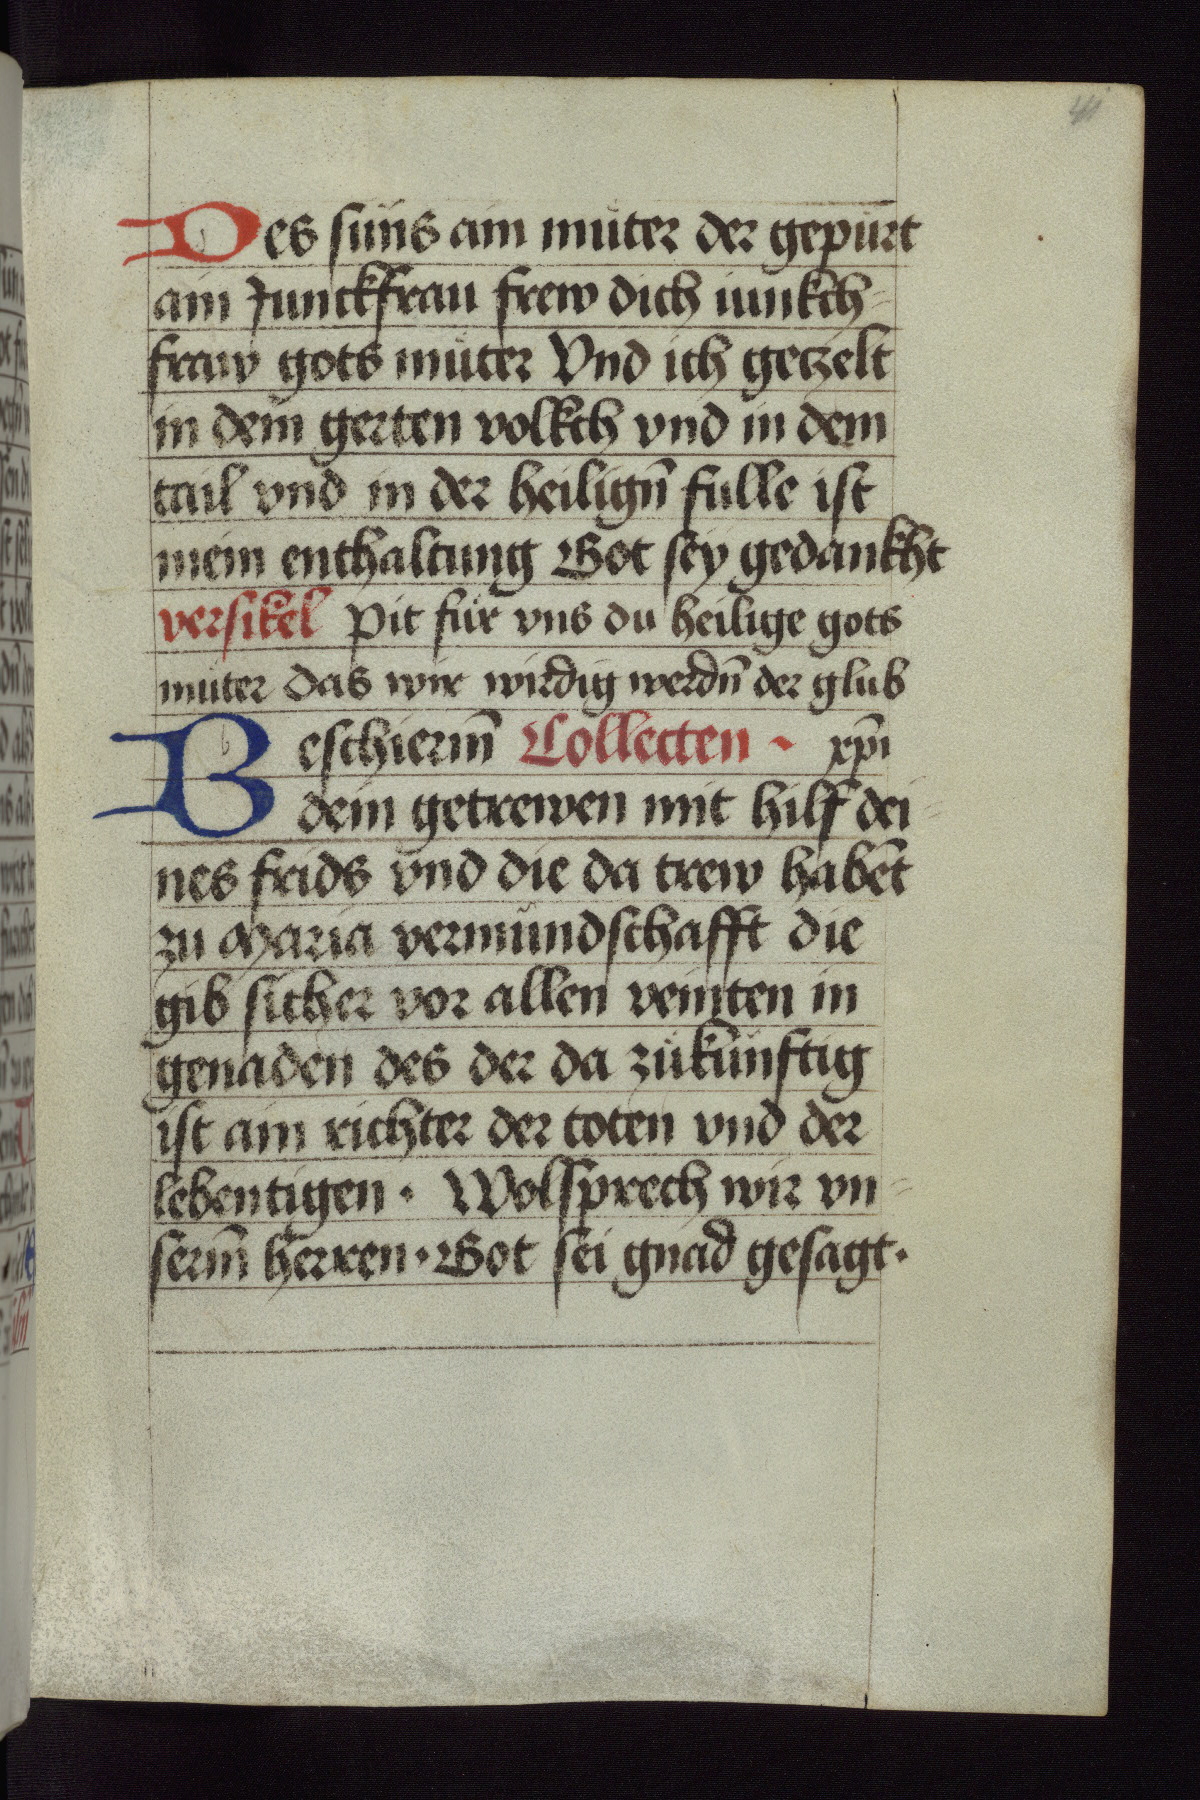 Des suns ain muter der gepurt
ain Junckfrau frew dich iunkch-
fraw gots muter Vnd ich getzelt
in dem gerten volkch vnd in dem
tail vnd in der heilign̄ fulle ist
mein enthaltung Got sey gedankht
versikel Pit für vns du heilige gots
muter das wir wirdig werdn̄ der glub
Beschierm̄ Collecten · xp̄i
dein getrewen mit hilf dei-
nes frids vnd die da trew habēt
zu Maria vermundschafft die
gib sicher vor allen veinten in
genaden des der da zukunftig
ist ain richter der toten vnd der
lebentigen · Wolsprech wir vn-
serm̄ herren · Got sei gnad gesagt ·